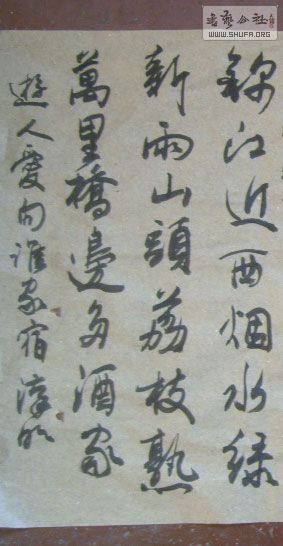 錦江近西烟水緑
新雨山頭荔枝熟
萬里橋邊多酒家
遊人愛向誰家宿
书艺公社
WWW.SHUFA.ORG